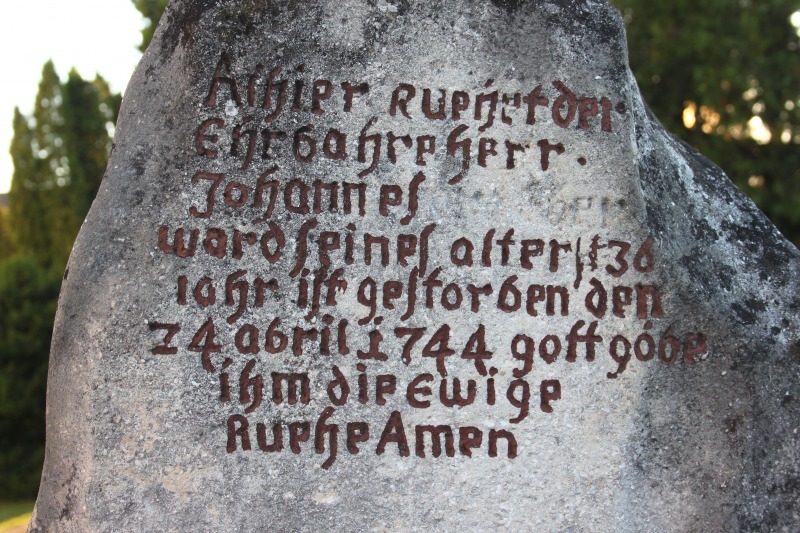 Alhier Ruehet der
Ehrbahre herr.
Johannes
ward seines alters 36
iahr ist gestorben den
24 abril 1744 gott gebe
ihm die Ewige
Ruehe Amen